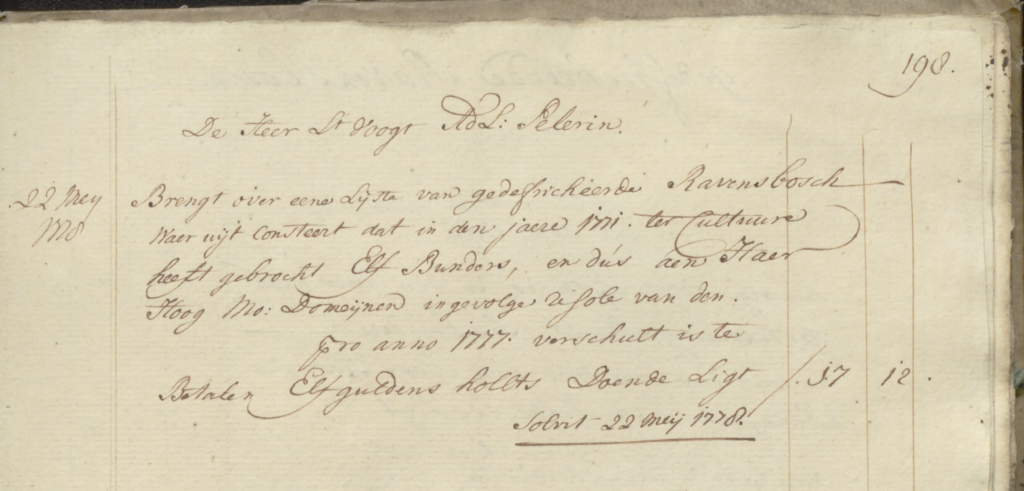 198.
De Heer Lt voogt Ad L: Pelerin.
22 Mey
1778
Brengt over eene Lijste van gedefricheerde Ravensbosch
waer uijt consteert dat in den jaere 1771. ter Cultuure
heeft gebrocht Elf Bunders, en dús aen Haer
Hoog Mo: Domeijnen ingevolge resole van den.
pro anno 1777. verschult is te
Betalen Elf guldens hollts Doende Ligt /. 17 12.
Solvit 22 Meij 1778.